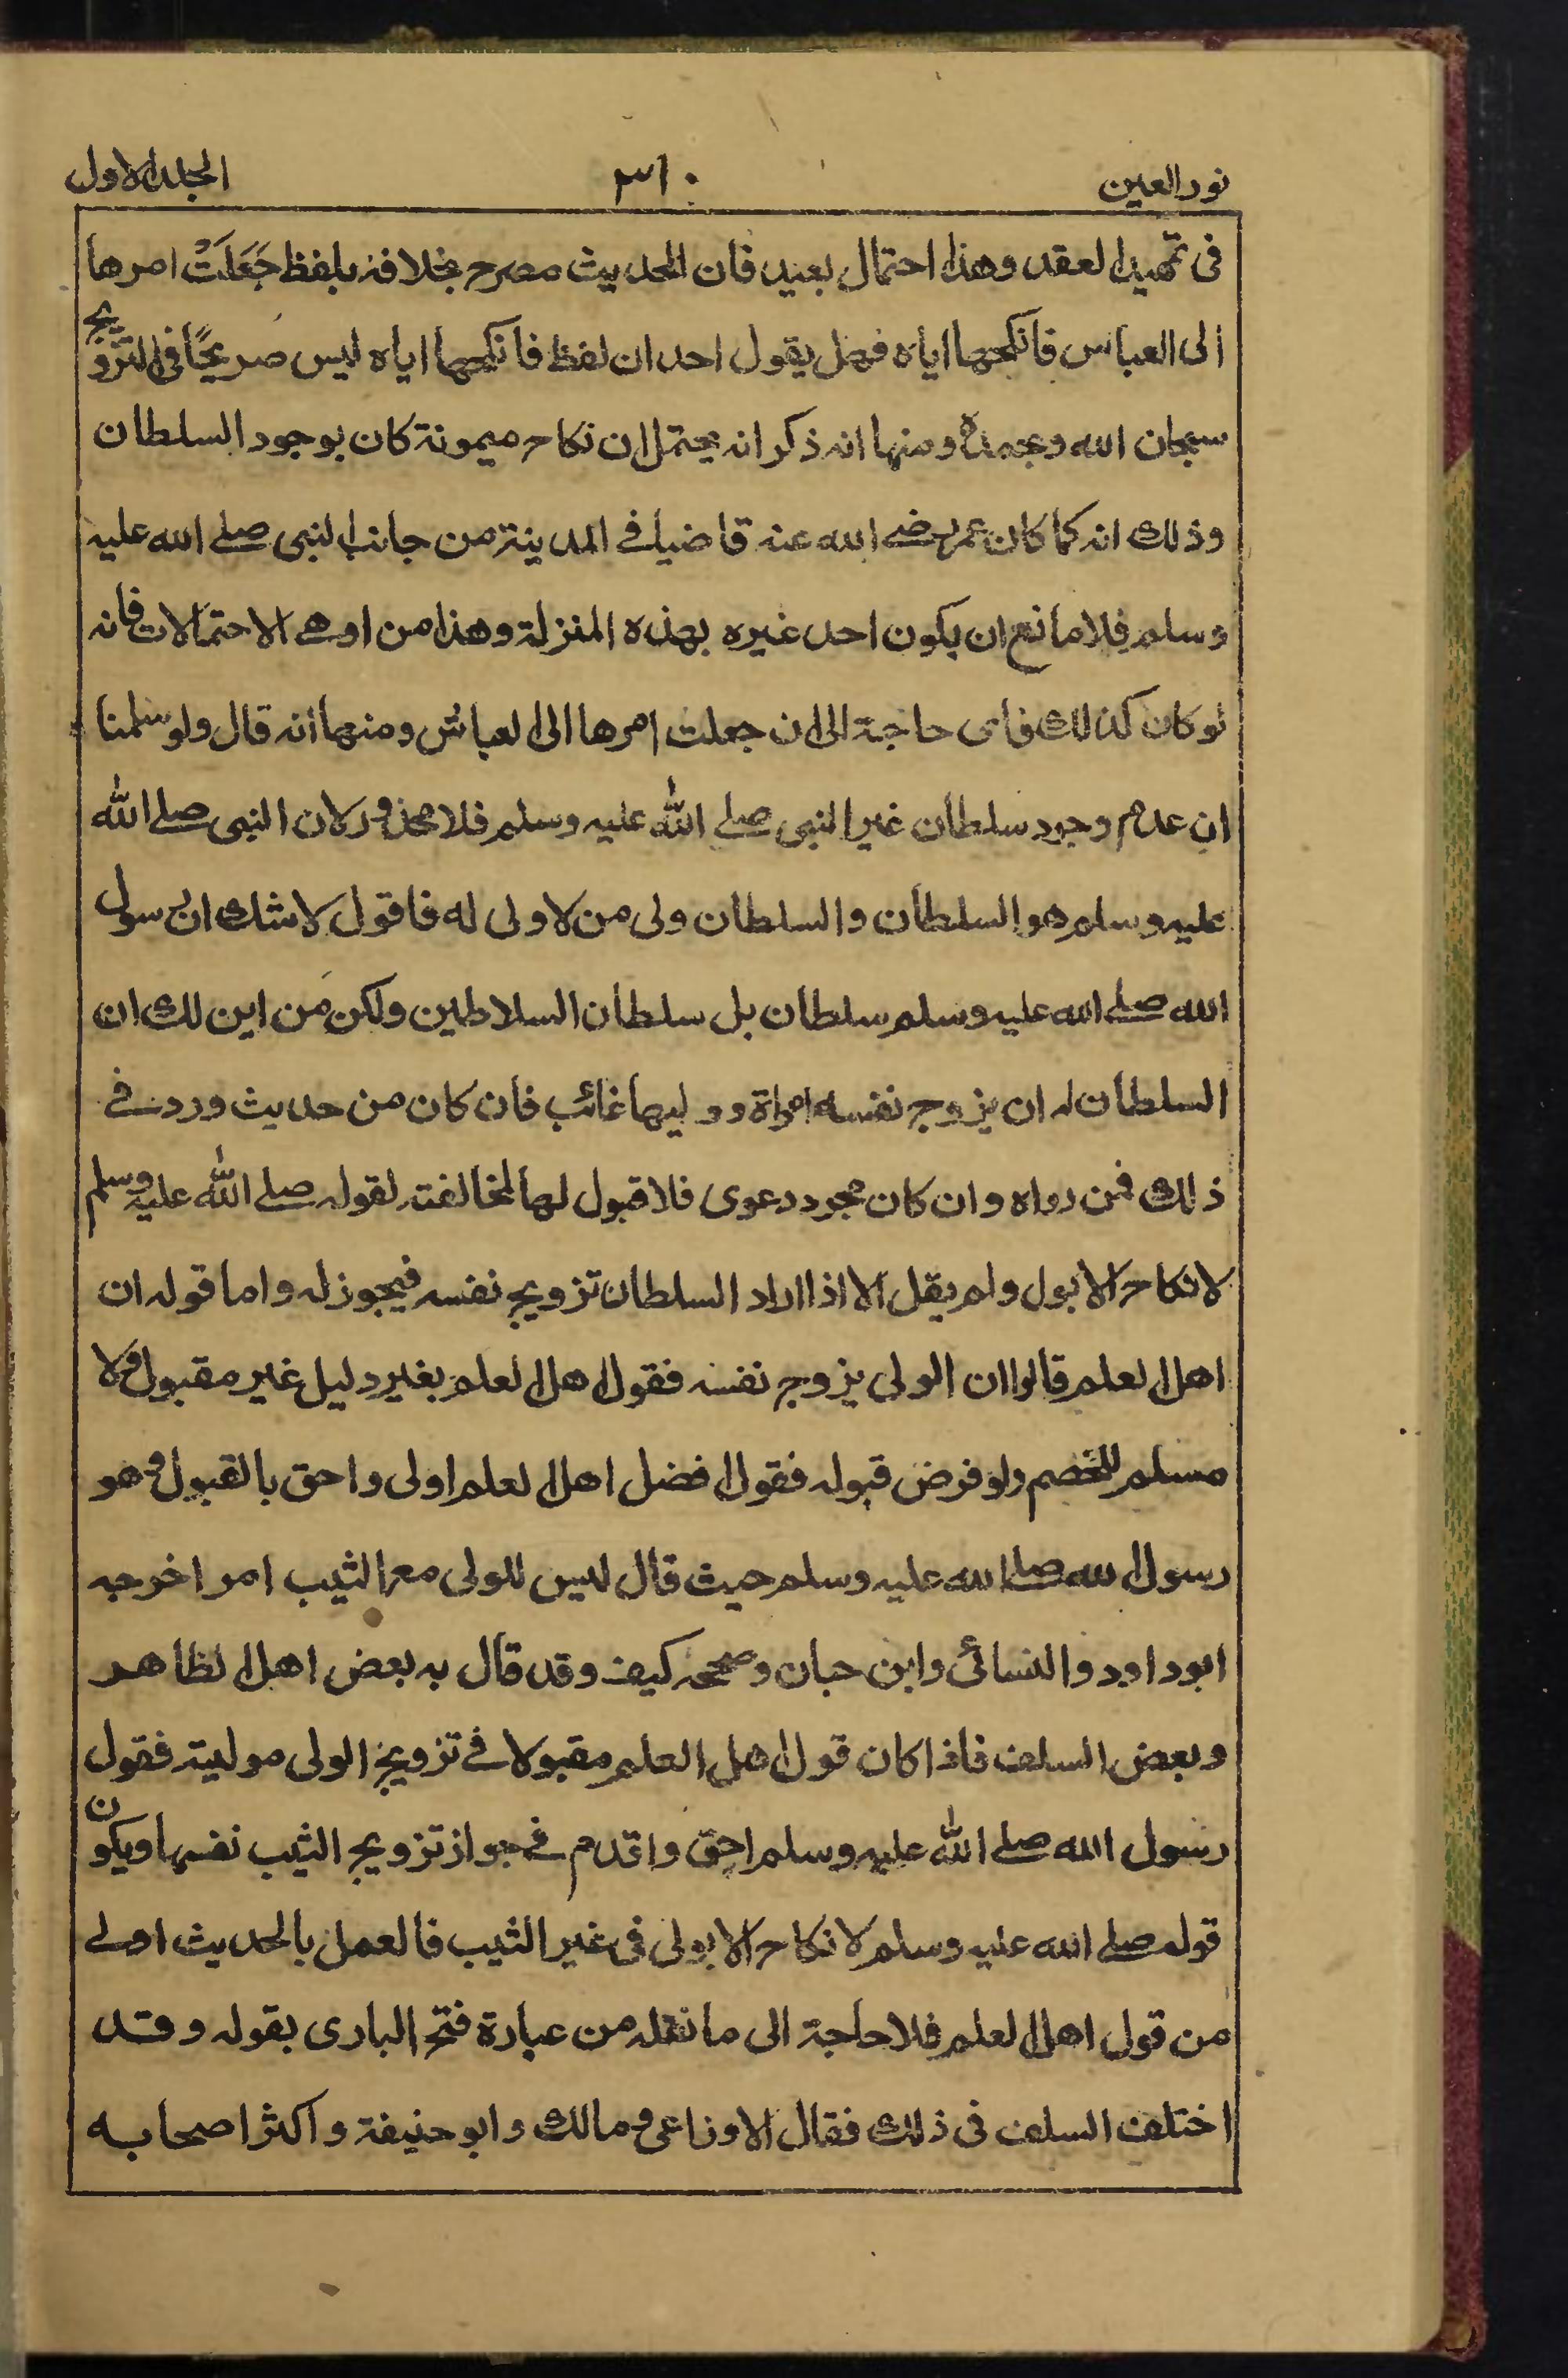 نور العين ٣١٠ الجلد الاول
فى تمهيد العقد وهذا احتمال بعيد فان الحديث مصرح بخلافه بلفظ جَعَلَتْ امرها
الى العباس فانكحها اياه فهل يقول احد ان لفظ فانكحها اياه ليس صريحًا فى التزويج
سبحان الله وبحمده ومنها انه ذكر انه يحتمل ان نكاح ميمونة كان بوجود السلطان
وذلك انه كما كان عمر رضى الله عنه قاضيا فى المدينة من جانب النبى صلى الله عليه
وسلم فلا مانع ان يكون احد غيره بهذه المنزلة وهذا من اوهى الاحتمالات فانه
لو كان كذلك فاى حاجة الى ان جعلت امرها الى العباس ومنها انه قال ولو سلمنا
ان عدم وجود سلطان غير النبى صلى الله عليه وسلم فلا محذور لان النبى صلى الله
عليه وسلم هو السلطان والسلطان ولى من لا ولى له فاقول لا شك ان رسول
الله صلى الله عليه وسلم سلطان بل سلطان السلاطين ولكن من اين لك ان
السلطان له ان يزوج نفسه امراة و وليها غائب فان كان من حديث ورد فى
ذلك فمن رواه وان كان مجرد دعوى فلا قبول لها لمخالفته لقوله صلى الله عليه وسلم
لا نكاح الا بولى ولم يقل الا اذا اراد السلطان تزويج نفسه فيجوز له واما قوله ان
اهل العلم قالوا ان الولى يزوج نفسه فقول اهل العلم بغير دليل غير مقبول ولا
مسلم للخصم ولو فرض قبوله فقول افضل اهل العلم اولى واحق بالقبول وهو
رسول الله صلى الله عليه وسلم حيث قال ليس للولى مع الثيب امر اخرجه
ابو داود والنسائى وابن حبان وصححه كيف وقد قال به بعض اهل الظاهر
وبعض السلف فاذا كان قول اهل العلم مقبولا فى تزويج الولى موليته فقول
رسول الله صلى الله عليه وسلم احق واقدم فى جواز تزويج الثيب نفسها ويكون
قوله صلى الله عليه وسلم لا نكاح الا بولى فى غير الثيب فالعمل بالحديث اولى
من قول اهل العلم فلا حاجة الى ما نقله من عبارة فتح البارى بقوله وقد
اختلف السلف فى ذلك فقال الاوزاعى ومالك وابو حنيفة واكثر اصحابه